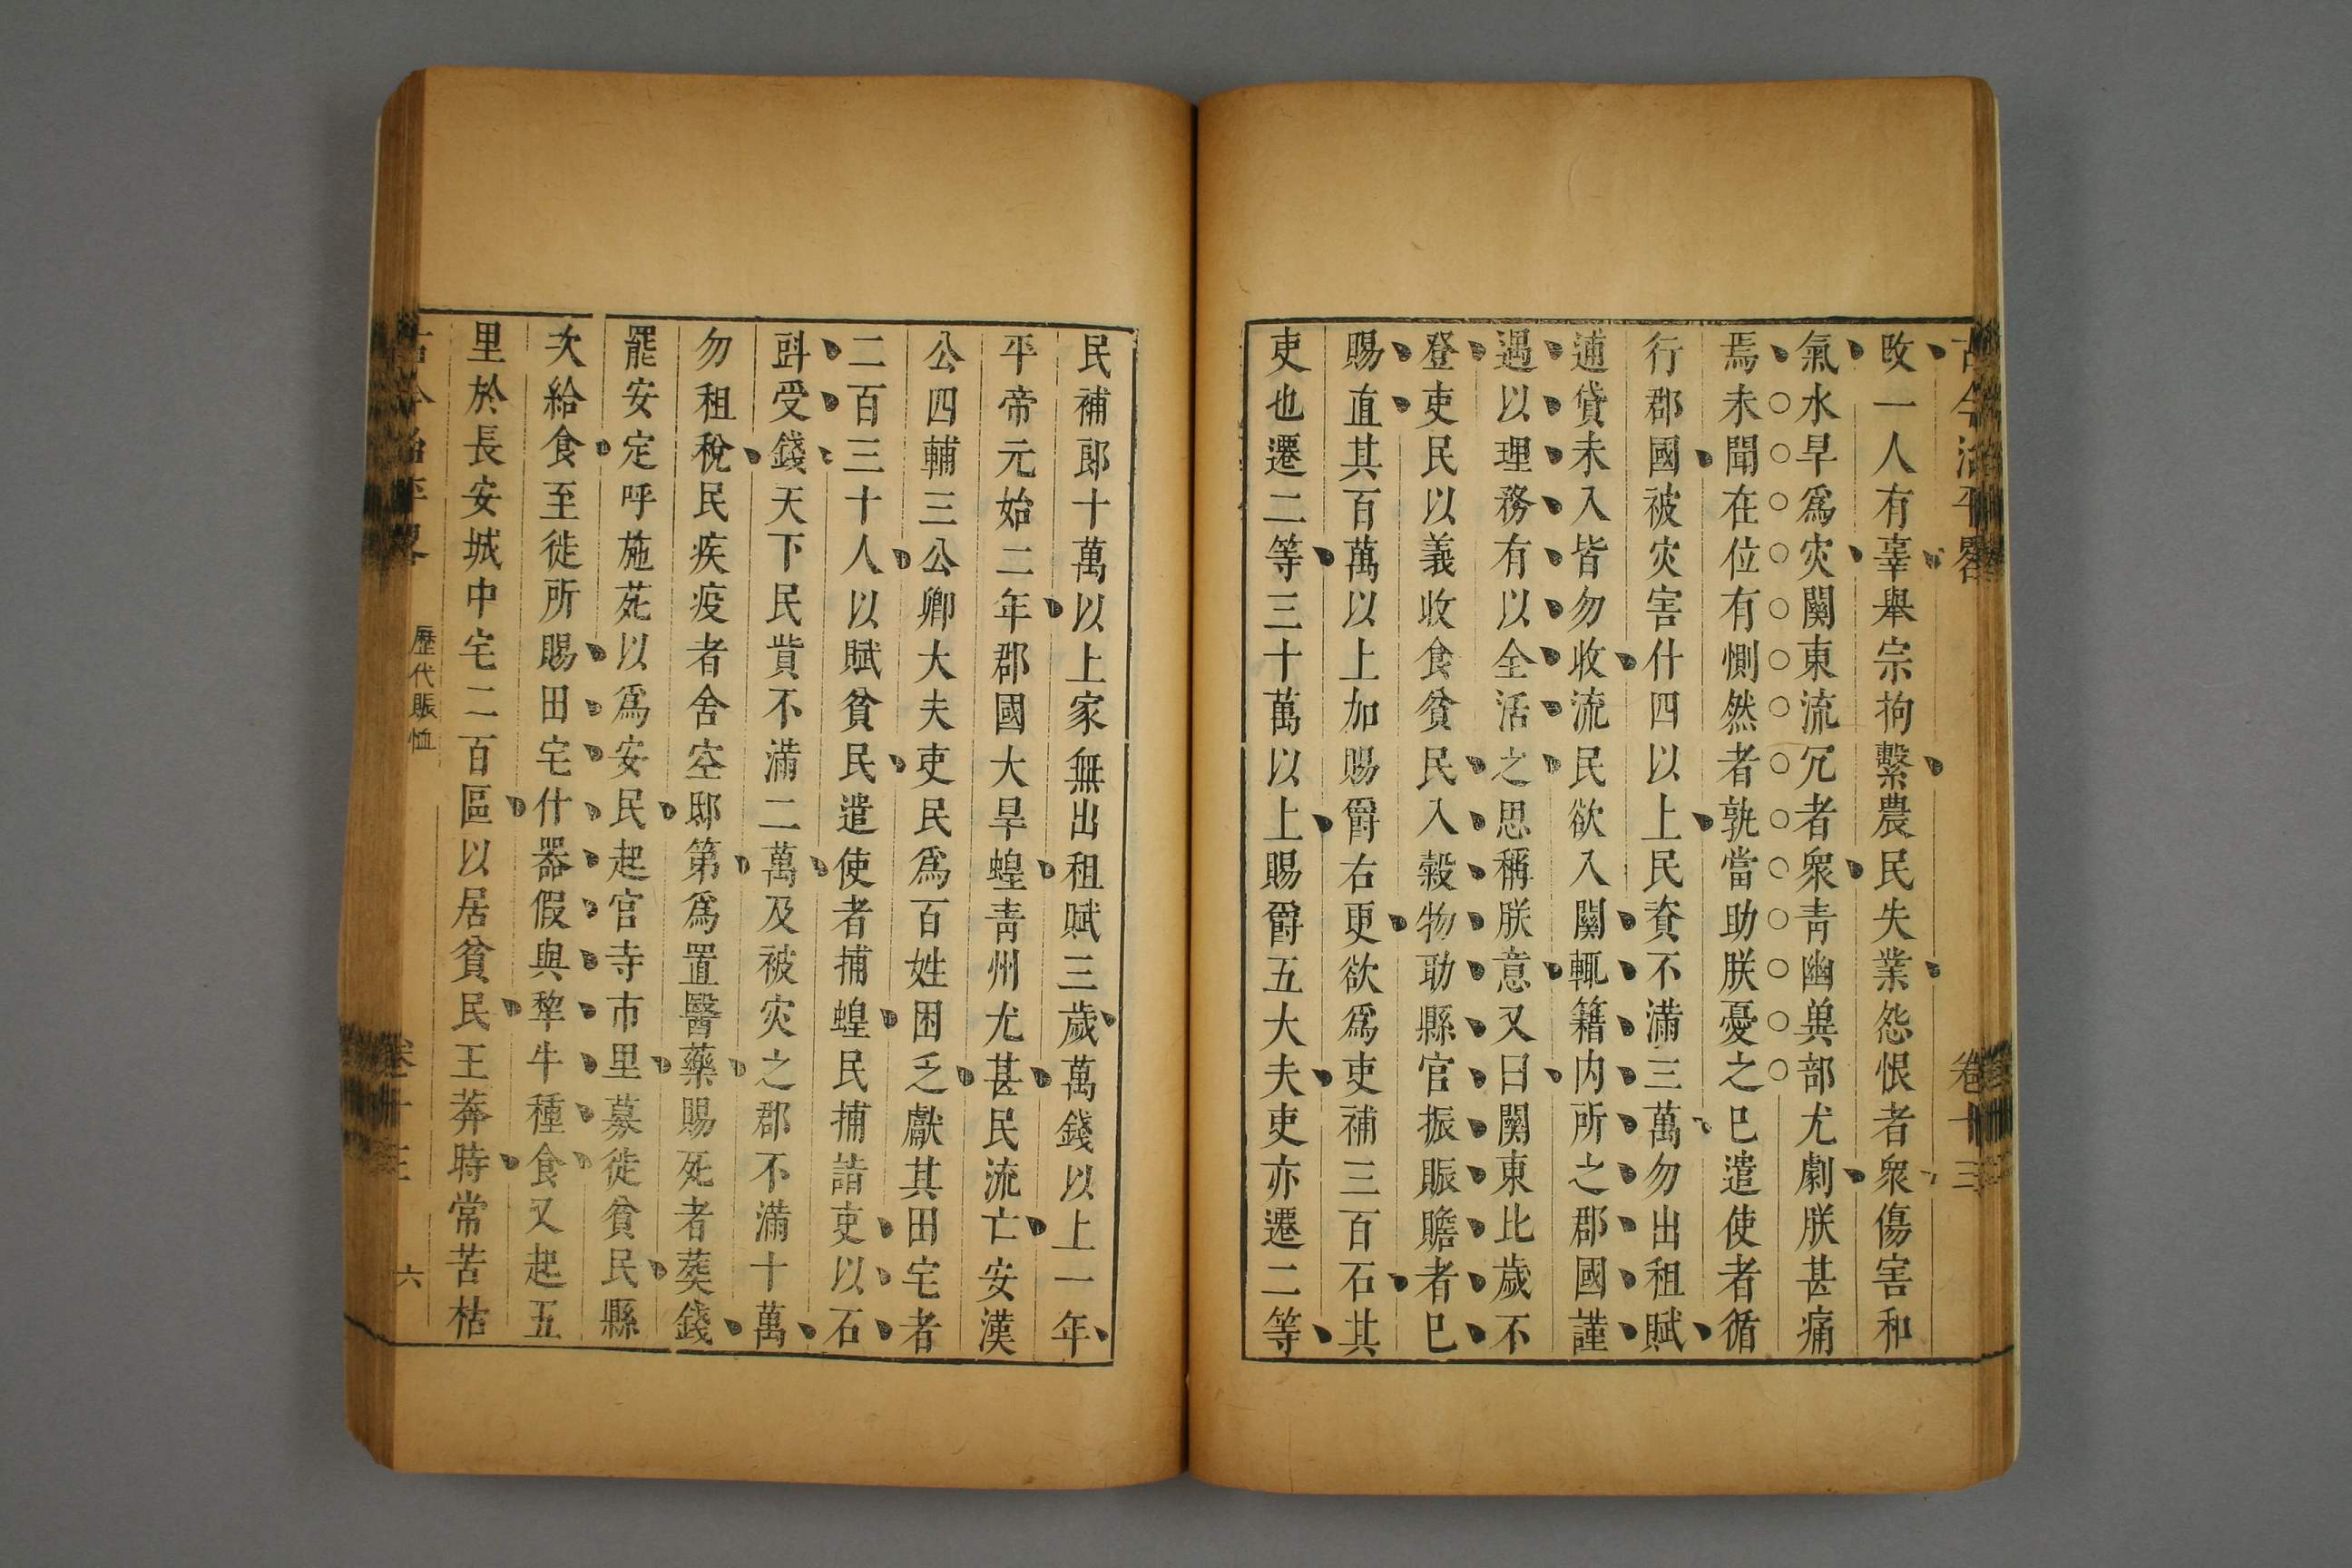 古今治平畧 卷十三
政一人有辜舉宗拘繫農民失業怨恨者衆傷害和
氣水旱爲灾關東流冗者衆青幽兾部尤劇朕甚痛
焉未聞在位有惻然者孰當助朕憂之已遣使者循
行郡國被灾害什四以上民貲不滿三萬勿出租賦
逋貸未入皆勿收流民欲入關輒籍内所之郡國謹
遇以理務有以全活之思稱朕意又曰關東比歲不
登吏民以義收食貧民入穀物助縣官振賑贍者已
賜直其百萬以上加賜爵右更欲爲吏補三百石其
吏也遷二等三十萬以上賜爵五大夫吏亦遷二等
民補郎十萬以上家無出租賦三歲萬錢以上一年
平帝元始二年郡國大旱蝗青州尤甚民流亡安漢
公四輔三公卿大夫吏民爲百姓困乏獻其田宅者
二百三十人以賦貧民遣使者捕蝗民捕詣吏以石
㪷受錢天下民貲不滿二萬及被灾之郡不滿十萬
勿租稅民疾疫者舍空邸第爲置醫藥賜死者葬錢
罷安定呼施苑以爲安民起官寺市里募徙貧民縣
次給食至徙所賜田宅什器假與犂牛種食又起五
里於長安城中宅二百區以居貧民王莽時常苦枯
古今治平畧 歷代賑恤 卷十三 六